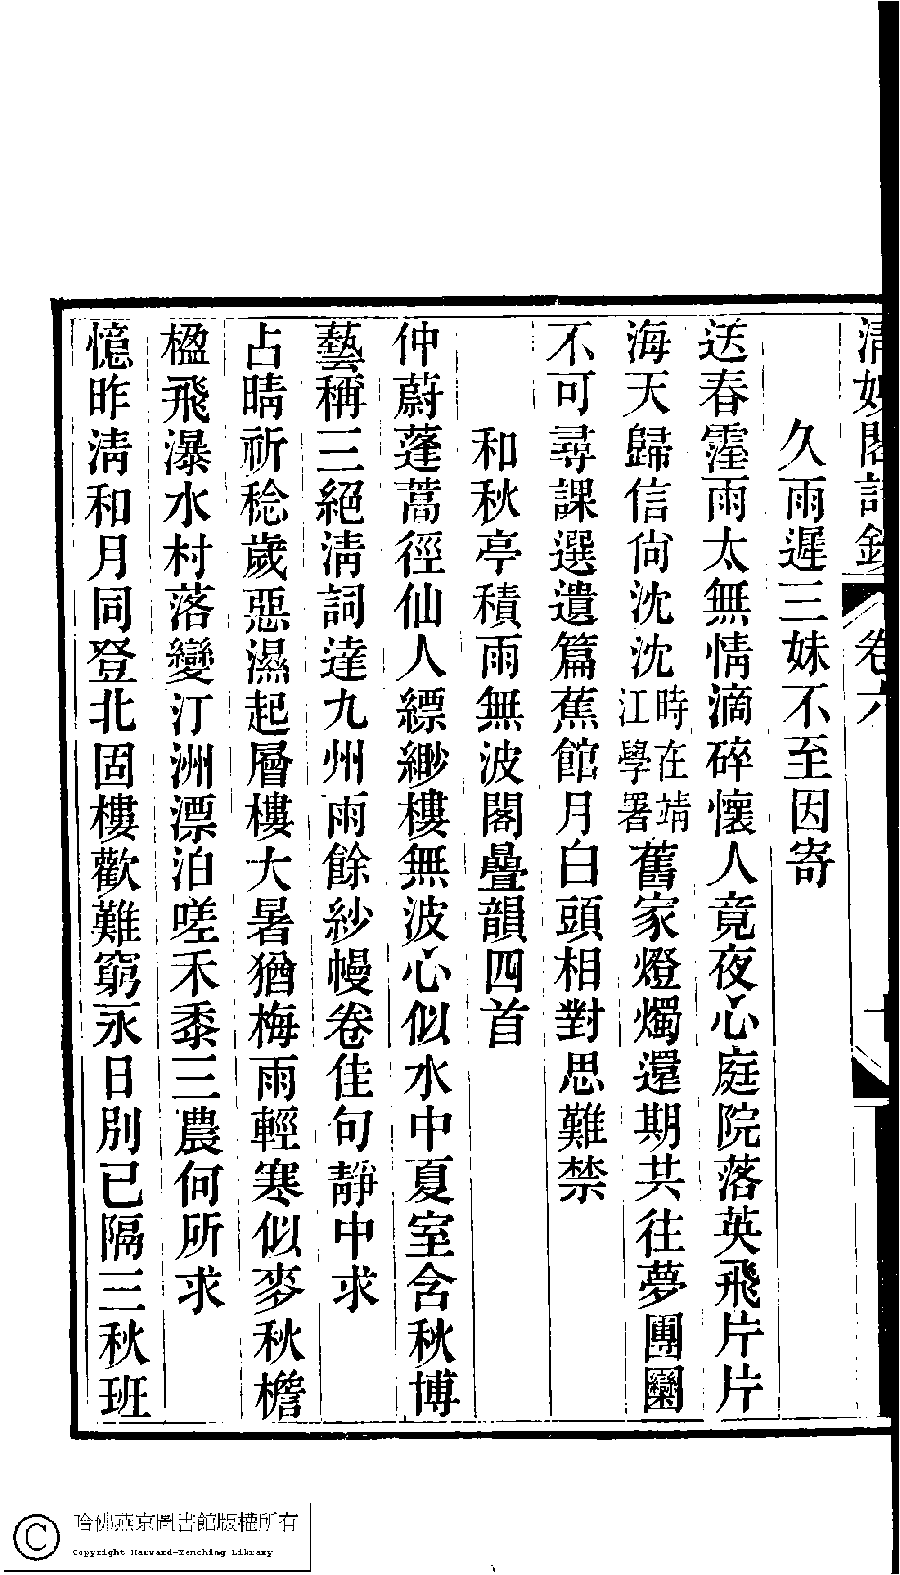 卷六
久雨遲三妹不至因寄
送春霪雨太無情滴碎懷人竟夜心庭院落英飛片片
海天歸信尙沈沈時在靖江學署舊家燈燭還期共往夢團圞
不可尋課選遺篇蕉館月白頭相對思難禁
和秋亭積雨無波閣疊韻四首
仲蔚蓬蒿徑仙人縹緲樓無波心似水中夏室含秋博
藝稱三絕淸詞達九州雨餘紗幔卷佳句靜中求
占晴祈稔歲惡濕起層樓大暑猶梅雨輕寒似麥秋檐
楹飛瀑水村落變汀洲漂泊嗟禾黍三農何所求
憶昨淸和月同登北固樓歡難窮永日別已隔三秋班
哈佛燕京圖書館版權所有
Copyright Harvard-Yenching Library